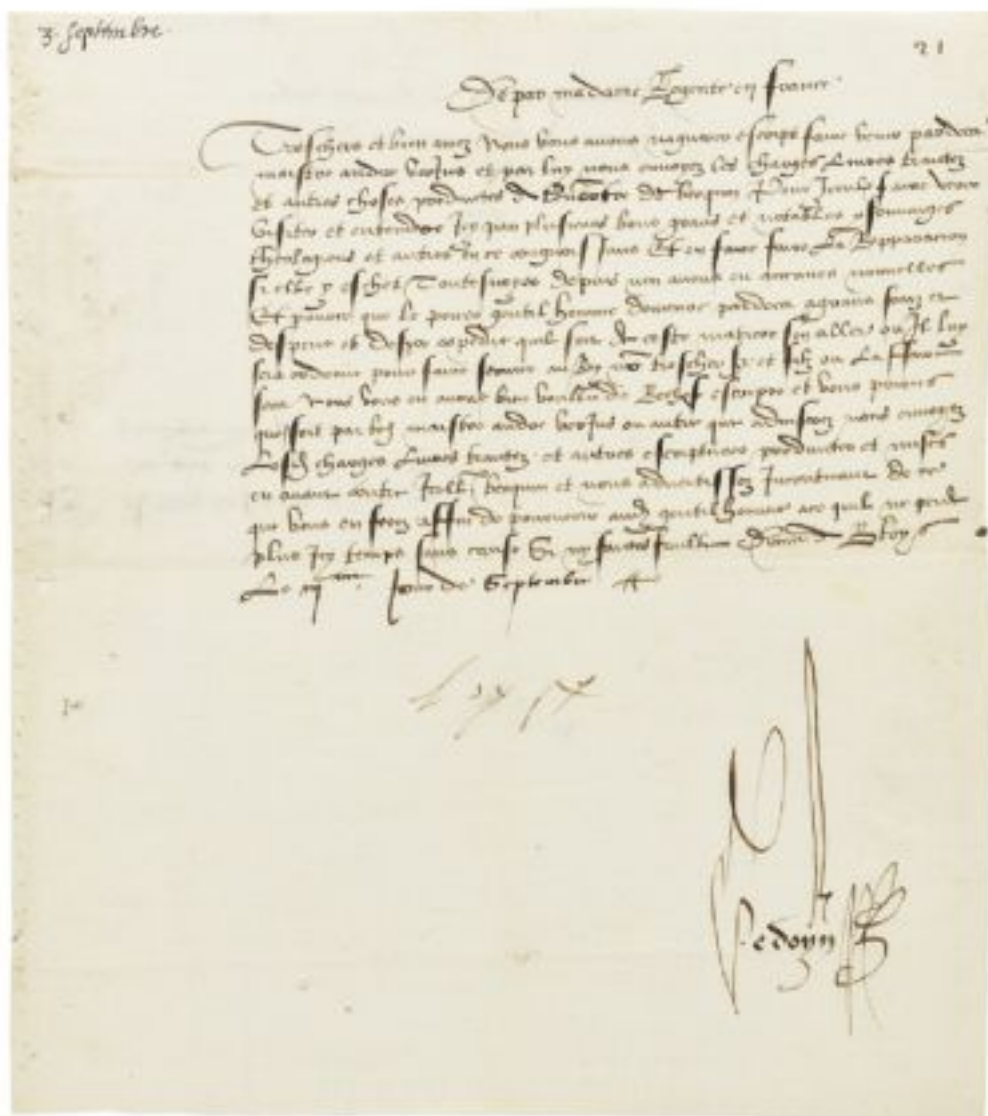 3. septembre.
21
De par madame Regente en france
Treschers et bien amez Nous vous avons nagueres escript faire venir pardeca
maistre andre verjus et par luy nous envoyez les charges livres traictez
et autres choses produictes de berquin Pour Iceulx faire veoir
visiter et entendre Icy par plusieurs bons grans et notables personnaiges
theologiens et autres en ce congnoissans Et en faire faire la
si elle y eschet Toutesvoyes depuis nen avons eu aucunes nouvelles
Et pource que le povre gentil homme demeure pardeca a grans fraiz et
despens et desire expedie quil soit de ceste matiere sen aller ou Il luy
sera ordonne pour faire service au Roy trescher et filz en La
Nous vous en avons bien voullu de Rechef escripre et vous prions
que soit par maistre andre verjus ou autre que adviserez nous envoyez
charges livres traictez et autres escriptures produictes et mises
en avant contre berquin et nous advertissez Incontinant de ce
que vous en ferez affin de pourveoir gentilhomme ace quil ne perde
plus Icy temps sans cause Si ny faictes faulte Donne a Bloys
Le iij jour de Septembre